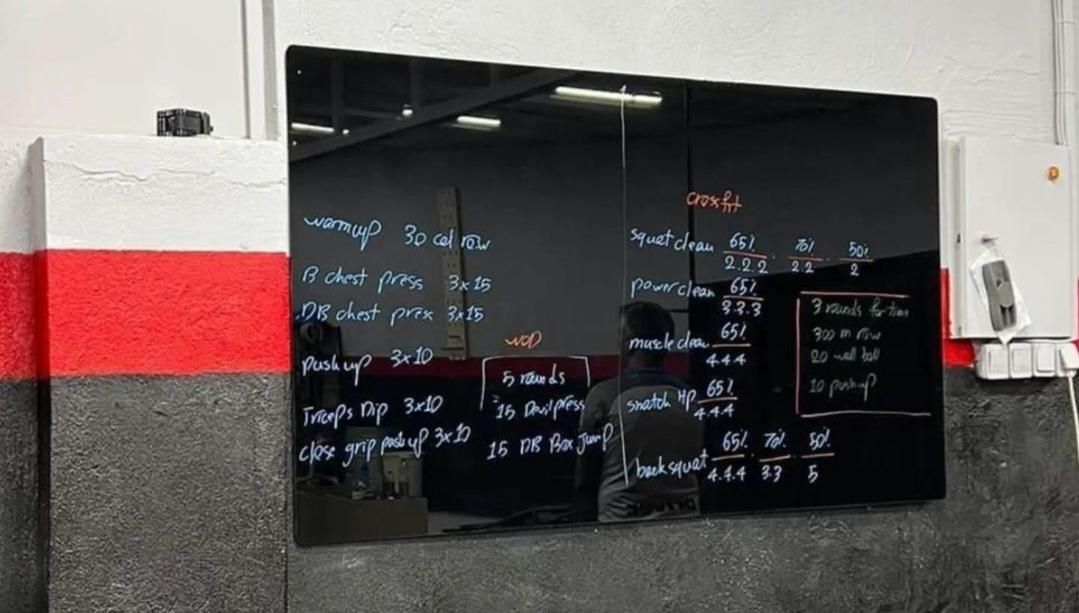 warmup 30 cal row
B chest press 3x15
DB chest press 3x15
push up 3x10
Triceps Dip 3x10
close grip push up 3x10
WOD
5 rounds
15 Devil press
15 DB Box Jump
crosfit
squat clean 65% 70% 50%
2.2.2 2.2 2
power clean 65%
3.3.3
muscle clean 65%
4.4.4
snatch HP 65%
4.4.4
back squat 65% 70% 50%
4.4.4 3.3 5
3 rounds for time
300 m row
20 wall ball
10 push up